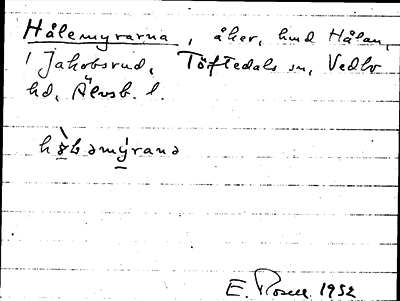 Hålemyrarna, åker, hmd Hålan,
1 Jakobsrud, Töftedals sn, Vedbo
hd, Älvsb. l.
hòləmýranə
E. Rosell 1952